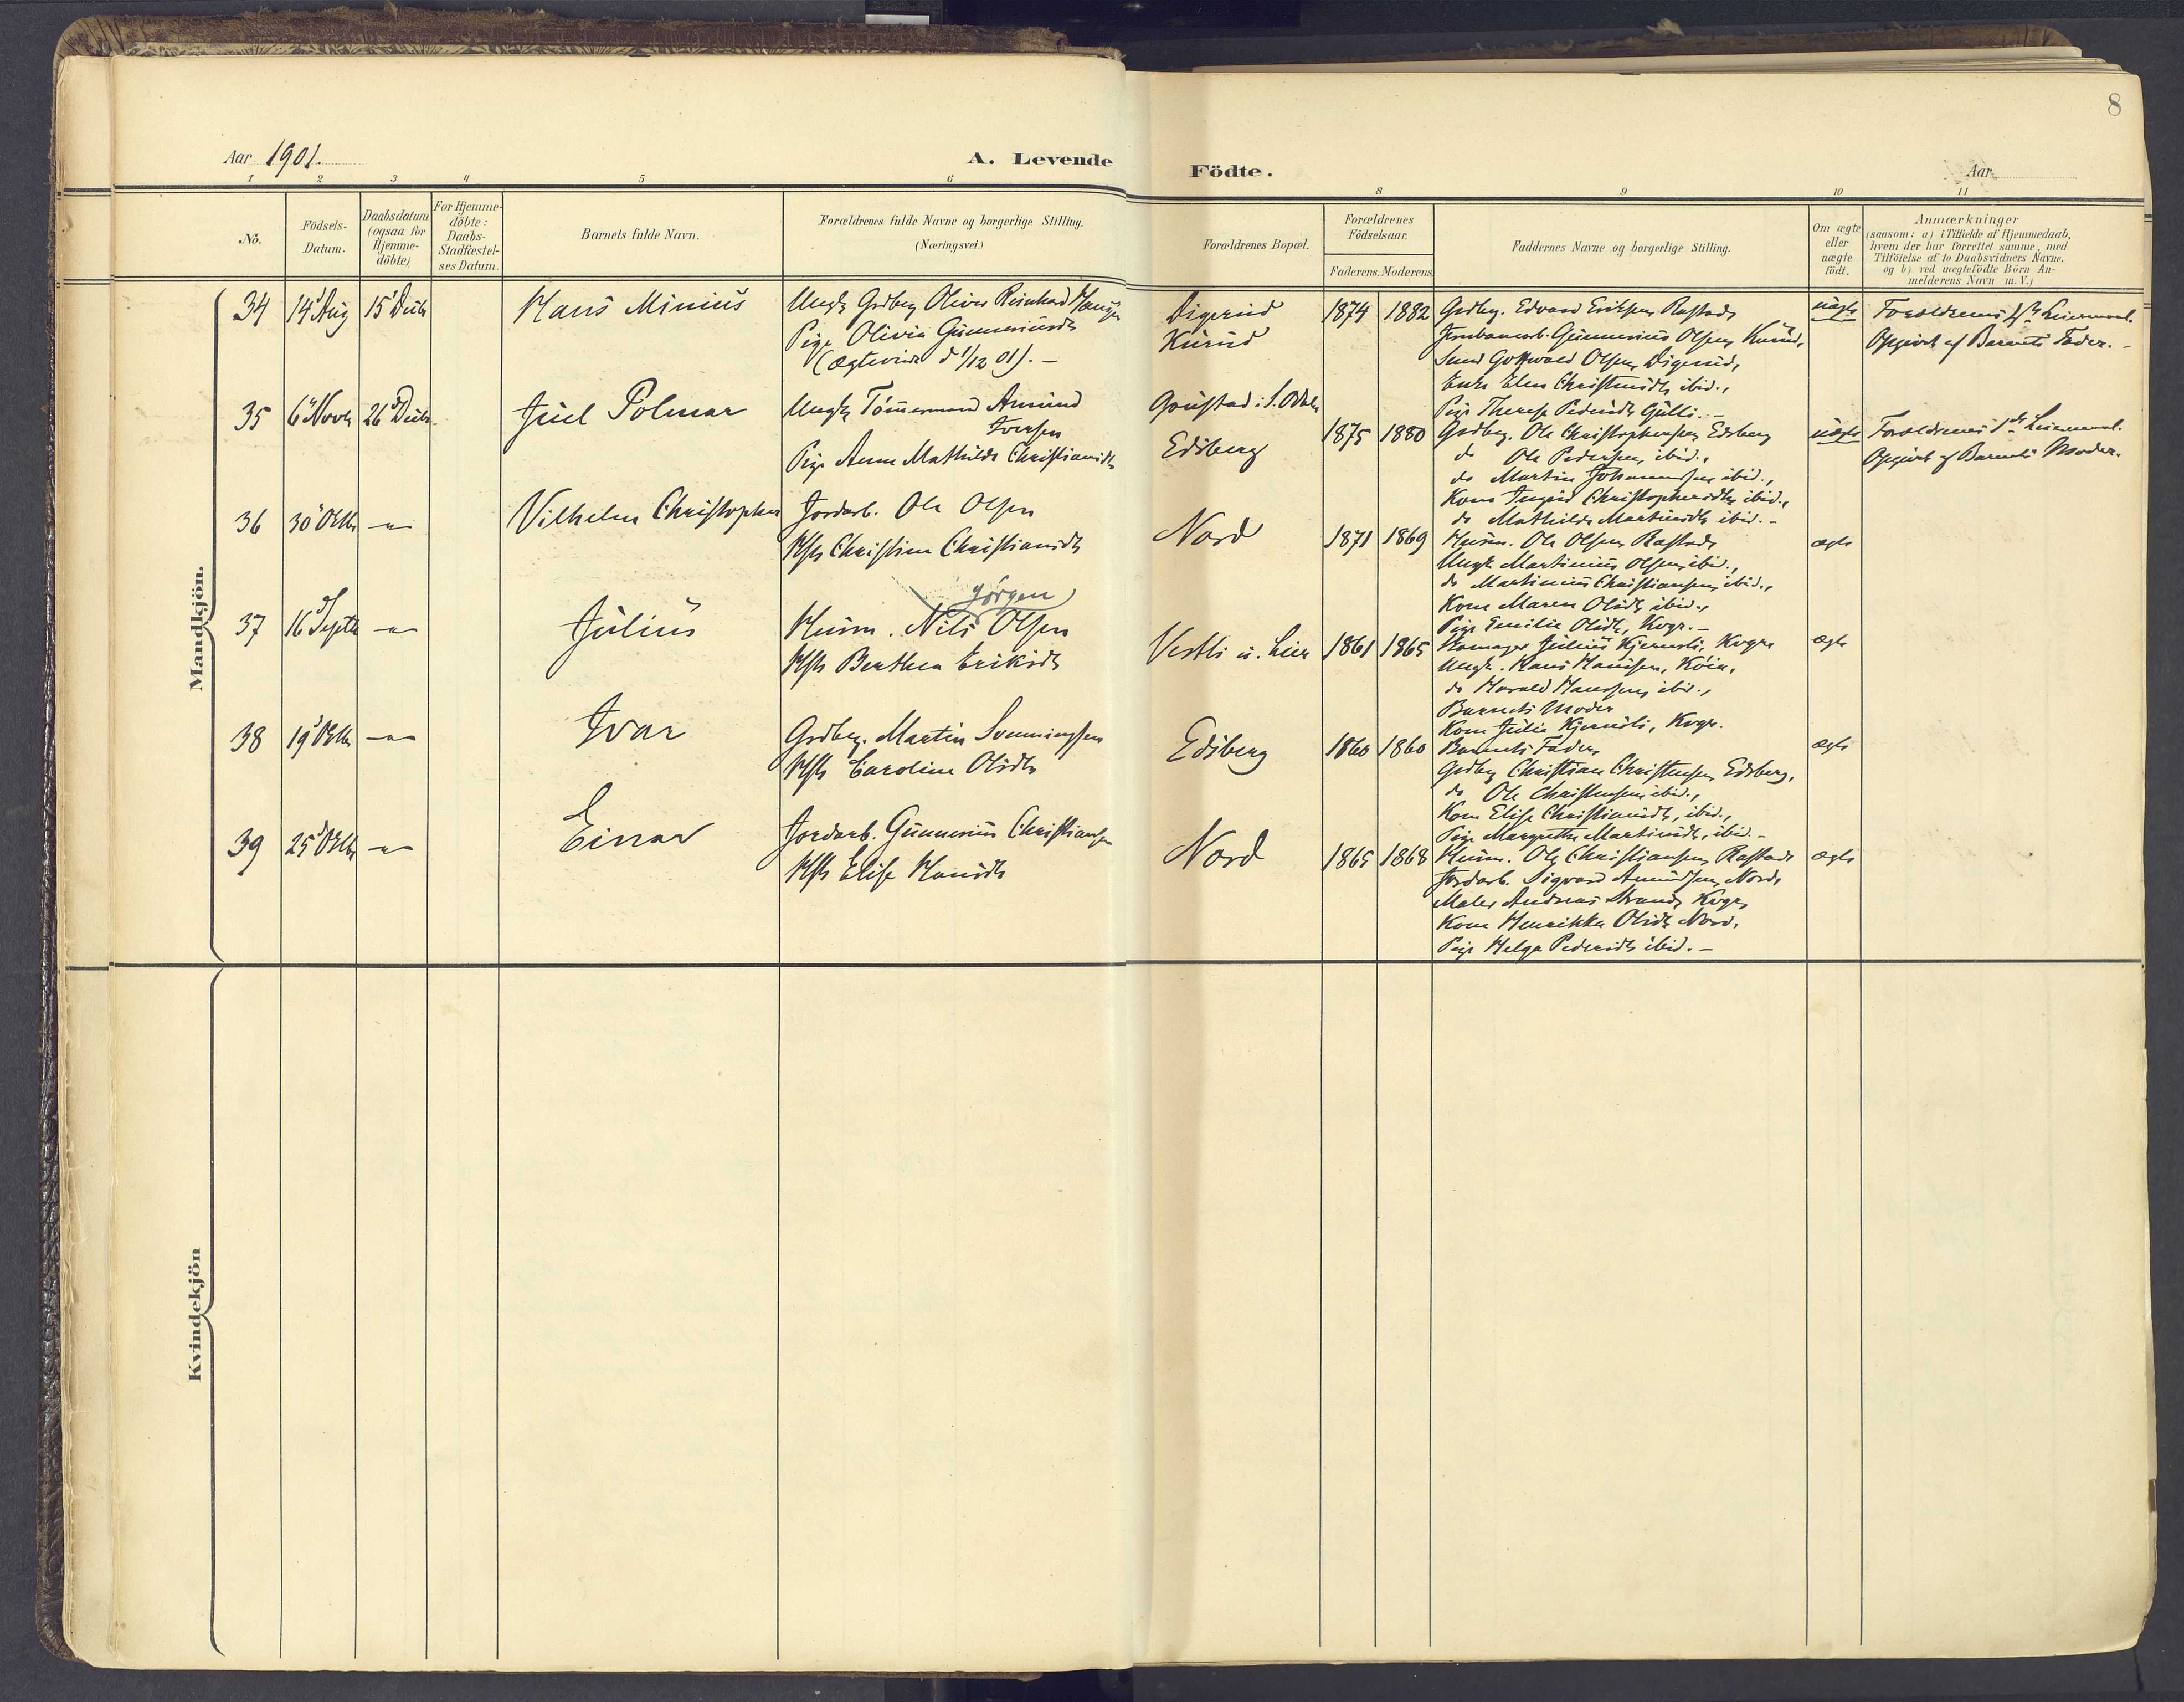 8
Aar 1901.
A. Levende Födte.
Aar
1 2 3 4 5 6 8 9 10 11
No.
Födsels-Datum.
Daabsdatum (ogsaa for Hjemme-döbte)
For Hjemme-döbte: Daabs-Stadfæstel-ses Datum.
Barnets fulde Navn.
Forældrenes fulde Navne og borgerlige Stilling.
(Næringsvei.)
Forældrenes Bopæl.
Forældrenes Födselsaar.
Faderens. Moderens.
Faddernes Navne og borgerlige Stilling.
Om ægte eller uægte födt.
Anmærkninger
(saasom: a) i Tilfælde af Hjemmedaab,
hvem der har forrettet samme, med
Tilföielse af to Daabsvidners Navne.
og b) ved uægtefödte Börn An-
melderens Navn m. V.)
Mandkjön.
34 14 Aug 15 Decb Hans Minius
Ungk. Grdbrg Oliver Reinhard
Pige Olivia Gunneriusdt
(Ægteviede d 1/12 01). –
Digerud
Kurud
1874 1882
Grdbrg. Edvard Eriksen, Rastad,
Jernbanearb. Gunnerius Olsen, Kurud,
Gottwald Olsen, Digerud,
Enke Elen Christensdt, ibid.,
Pige Therese Pedersdt, Gulli. –
uægte
Forældrenes Leiermaal.
Opgivet af Barnets Fader. –
35 6 Novb 26 Decb.
Juel Polmar
Ungk. Tömmermand Amund
Iversen
Pige Anne Mathilde Christiansdt
Grustad i S. Odalen
Edsberg
1875 1880
Grdbrg. Ole Christophersen, Edsberg
do Ole Pedersen, ibid.,
do Martin Johannesen, ibid.,
Kone Ingrid Christophersdt, ibid.,
do Mathilde Martinsdt, ibid. –
uægte
Forældrenes 1ste Leiermaal.
Opgivet af Barnets Moder.
36 30 Octb –"–
Vilhelm Christopher
Jordarb. Ole Olsen
Hst. Christine Christiansdt
Nord
1871 1869
Husm. Ole Olsen, Rastad,
Ungk. Martinius Olsen, ibid.,
do Martinius Christiansen, ibid.,
Kone Maren Olsdt, ibid.,
Pige Emilie Olsdt, Kvgr. –
ægte
37 16 Septb –"–
Julius
Jörgen
Husm. Nils Olsen
Hst. Berthea Eriksdt
Vestli u. Lier
1861 1865
Julius Kjernsli, Kvgr.
Ungk. Hans Hansen,
do Harald Hansen, ibid.,
Barnets Moder
Kone Julie Kjernsli, Kvgr.
ægte
38 19 Octb –"–
Ivar
Grdbrg. Martin Svenningsen
Hst. Caroline Olsdt
Edsberg
1860 1860
Barnets Fader,
Grdbrg Christian Christensen, Edsberg,
do Ole Christensen, ibid.,
Kone Elise Christiansdt, ibid.,
Pige Margrethe Martinsdt, ibid. –
ægte
39 25 Octb –"–
Einar
Jordarb. Gunnerius Christiansen
Hst. Elise Hansdt
Nord
1865 1868
Husm. Ole Christiansen, Rastad
Jordarb. Sigvard Amundsen, Nord,
Maler Andreas Strand, Kvgr,
Kone Henrikke Olsdt, Nord,
Pige Helga Pedersdt, ibid. –
ægte
Kvindekjön